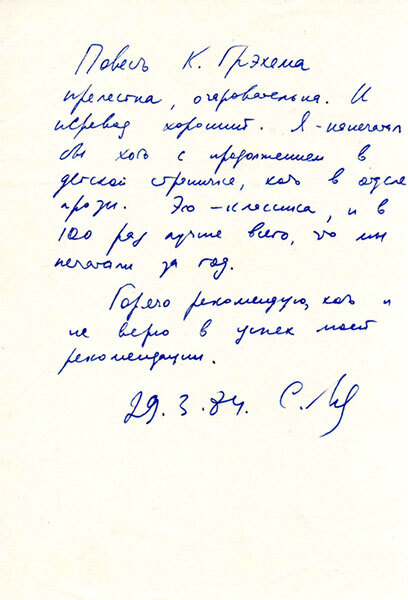 Повесть К. Грэхема
прелестна, очаровательна. И
перевод хороший. Я-напечатал
бы хоть с продолжением в
детской страничке, хоть в отделе
прозы. Это – классика, и в
100 раз лучше всего, что мы
печатали за год.
Горячо рекомендую, хоть и
не верю в успех моей
рекомендации.
29.3.84. С.